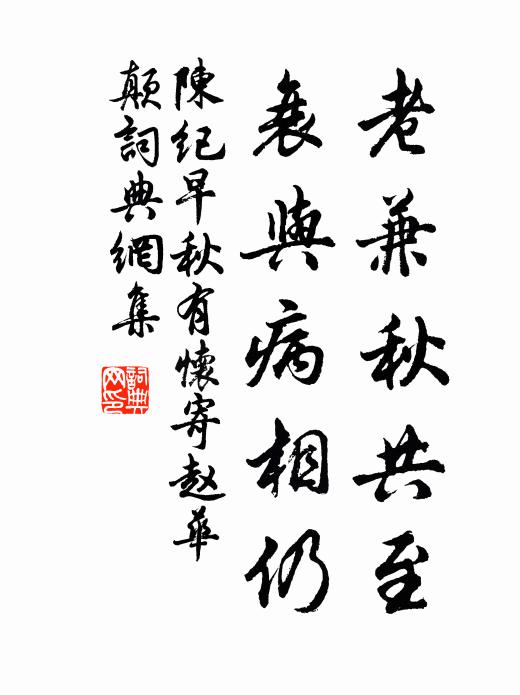 老兼秋共至
衰與病相仍
陳紀早秋有懷寄赵華
顛詞典網集
詞典
网印